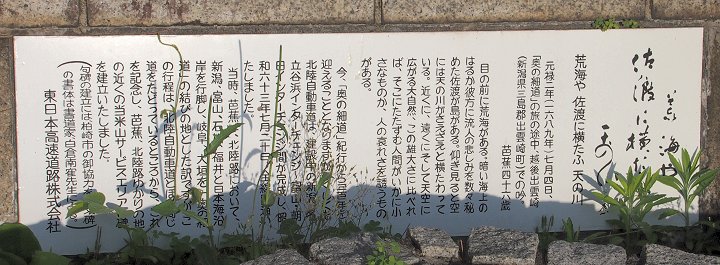 荒海や
佐渡に横たふ
天の川
荒海や 佐渡に横たふ 天の川
元禄二年（一六八九年）七月四日、
「奥の細道」の旅の途中、越後出雲崎
（新潟県三島郡出雲崎町）での吟
芭蕉四十六歳
目の前に荒海がある。暗い海上の
はるか彼方に流人の悲しみを数々秘
めた佐渡が島がある。仰ぎ見ると空
には天の川がさえざえと横たわって
いる。近くに、遠くにそして天空に
広がる大自然、この雄大さに比べれ
ば、そこにたたずむ人間がいかに小
さなものか、人の哀れさを詠んもの
がある。
今、「奥の細道」紀行から三百年を
迎えることとなりますが、
北陸自動車道は、建設中の新潟
立谷浜インターチェンジ～富山・朝
日インターチェンジ間が完成し、昭
和六十三年七月二十日、全線開通
たしました。
当時、芭蕉は、北陸路において、
新潟・富山、石川、福井と日本海沿
岸を行脚し、岐阜、大垣を
道」の結びの地とした訳ですが、こ
の行程は、北陸自動車道とほぼ同じ
道をたどっているところから、これ
を記念し、芭蕉、北陸路ゆかりの地
の近くの当米山サービスエリアへ碑
を建立いたしました。
（句碑の建立には柏崎市の御協力を、碑
の書体は書道家・白倉南寉先生に
東日本高速道路株式会社